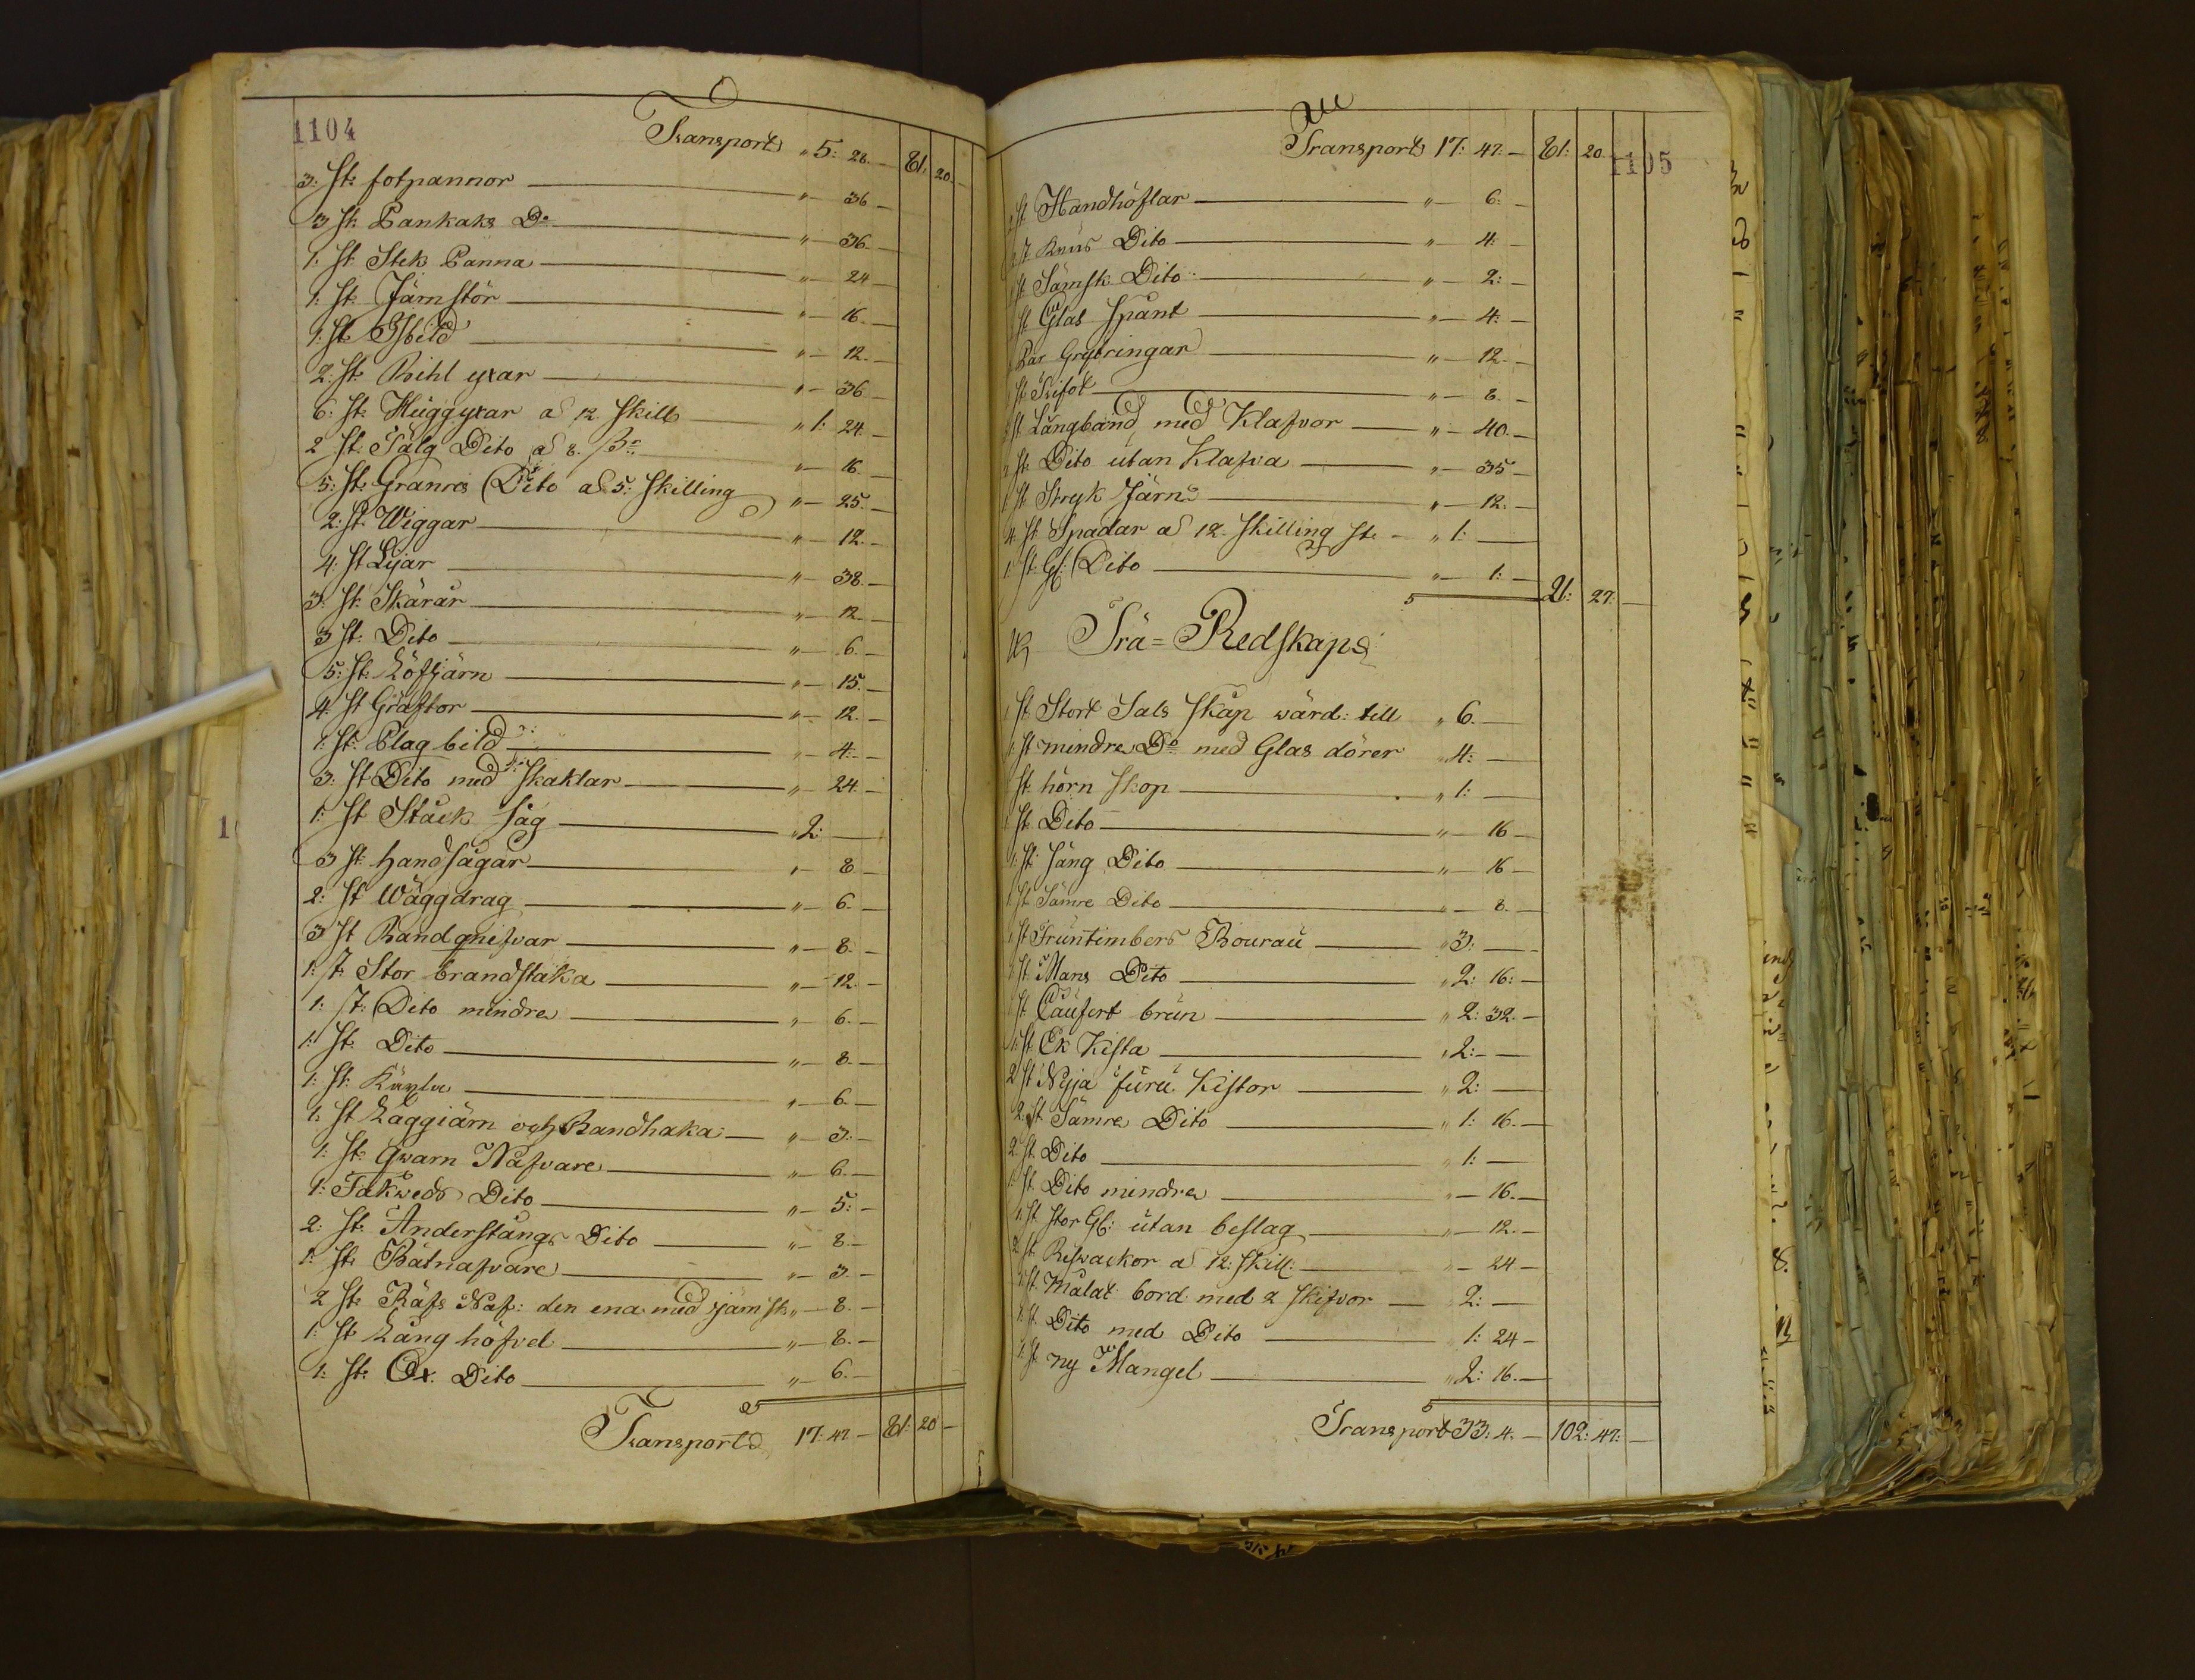 1104
Transport " 5: 28. — 81: 20. —
3: st: fotpannor — " — 36 —
3 st: Pankaks Do — " — 36. —
1: st: Stek Panna — " — 24
1: st: Järnstör — " — 16. —
1: st: Isbild — " — 12. —
2: st: Bihl yxar — " — 36 —
6: st: Huggyxar a 12 skill — " 1: 24. —
2 st: Tälg Dito a 8. — " — 16 —
5: st: Granris Dito a 5: skilling " — 25. —
2: st: Wiggar — " — 12. —
4: st Lijar — " — 38. —
3: st: Skäror — " — 12. —
3 st: Dito — " — 6. —
5: st: Löfjärn — " — 15. —
4: st Gräftor — " — 12. —
1: st: Plogbild — " — 4: —
3: st Dito med skaklar — " — 24 —
1: st Stäck såg — " 2: —
3 st: handsågar — " — 8 —
2: st Wäggdrag — " — 6. —
3 st Bandqnifvar — " — 8. —
1: st: Stor brandstaka — " — 12. —
1: st: Dito mindre — " — 6. —
1: st: Dito — " — 8. —
1: st: — " — 6. —
1: st Laggiärn och Bandhaka — " — 3: —
1: st: Qwarn Nafvare — " — 6. —
1: Takweds Dito — " — 5: —
2: st: Anderstångs Dito — " — 8. —
1: st: Båtnafvare — " — 3. —
2 st: Räfs Naf: den ena med — 8. —
1: st Lång höfvel — " — 8. —
1: st: Ox. Dito — " — 6. —
Transport 17: 47. — 81: 20 —
1105
Transport 17: 47: — 81: 20.
st Handhöflar — " — 6: —
st Dito — " — 4: —
st Sämsk Dito — " — 2: —
st Glas spänt — " — 4: —
Par Grytringar — " — 12. —
st Trefot — " — 8. —
st Långband med Klafvor — " — 40. —
st: Dito utan Klafva — " — 35 —
1 st Stryk Järn — " — 12. —
4 st Spadar a 12. skilling st. — " 1: —
1: st: Gl: Dito — " — 1: — 21: 27: —
Trä=Redskap
1 st Stort Sals skåp wärd: till " 6. —
1: st mindre Do med Glas dörer " 4: —
st: hörn skop — " 1: —
1 st: Dito — " — 16 —
1: st: säng Dito — " — 16 —
1 st Sämre Dito — " — 8. —
1 st Fruntimbers Bourau — " 3: —
1 st Mans Dito — " 2: 16: —
1 st Caufert brun — " 2: 32. —
1: st: Ek Kista — " 2: —
2 st Nyja furu Kistor — " 2: —
2 st Sämre Dito — " 1: 16. —
2 st. Dito — " 1: —
1 st Dito mindre — " — 16. —
1: st stor Gl: utan beslag — " — 12. —
2 st Reswackor a 12: skill: — " — 24 —
1: st: Målat bord med 2 skifvor — " 2: —
1: st: Dito med Dito — " 1: 24 —
1: st ny Mangel — " 2: 16. —
Transport 33: 4. — 102: 47: —